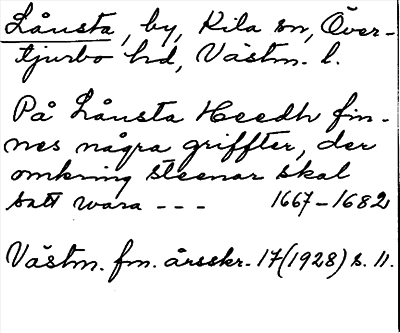 Lånsta, by, Kila sn, Över-
tjurbo hd, Västm. l.
På Lånsta Heedh fin-
nes några griffter, der
omkring steenar skal
satt wara - - - 1667-1682
Västm. fm. årsskr. 17 (1928) s. 11.